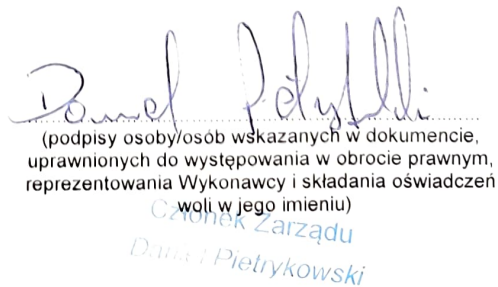 Daniel
(podpisy osoby/osób wskazanych w dokumencie,
uprawnionych do występowania w obrocie prawnym,
reprezentowania Wykonawcy i składania oświadczeń
woli w jego imieniu)
Członek Zarządu
Daniel Pietrykowski